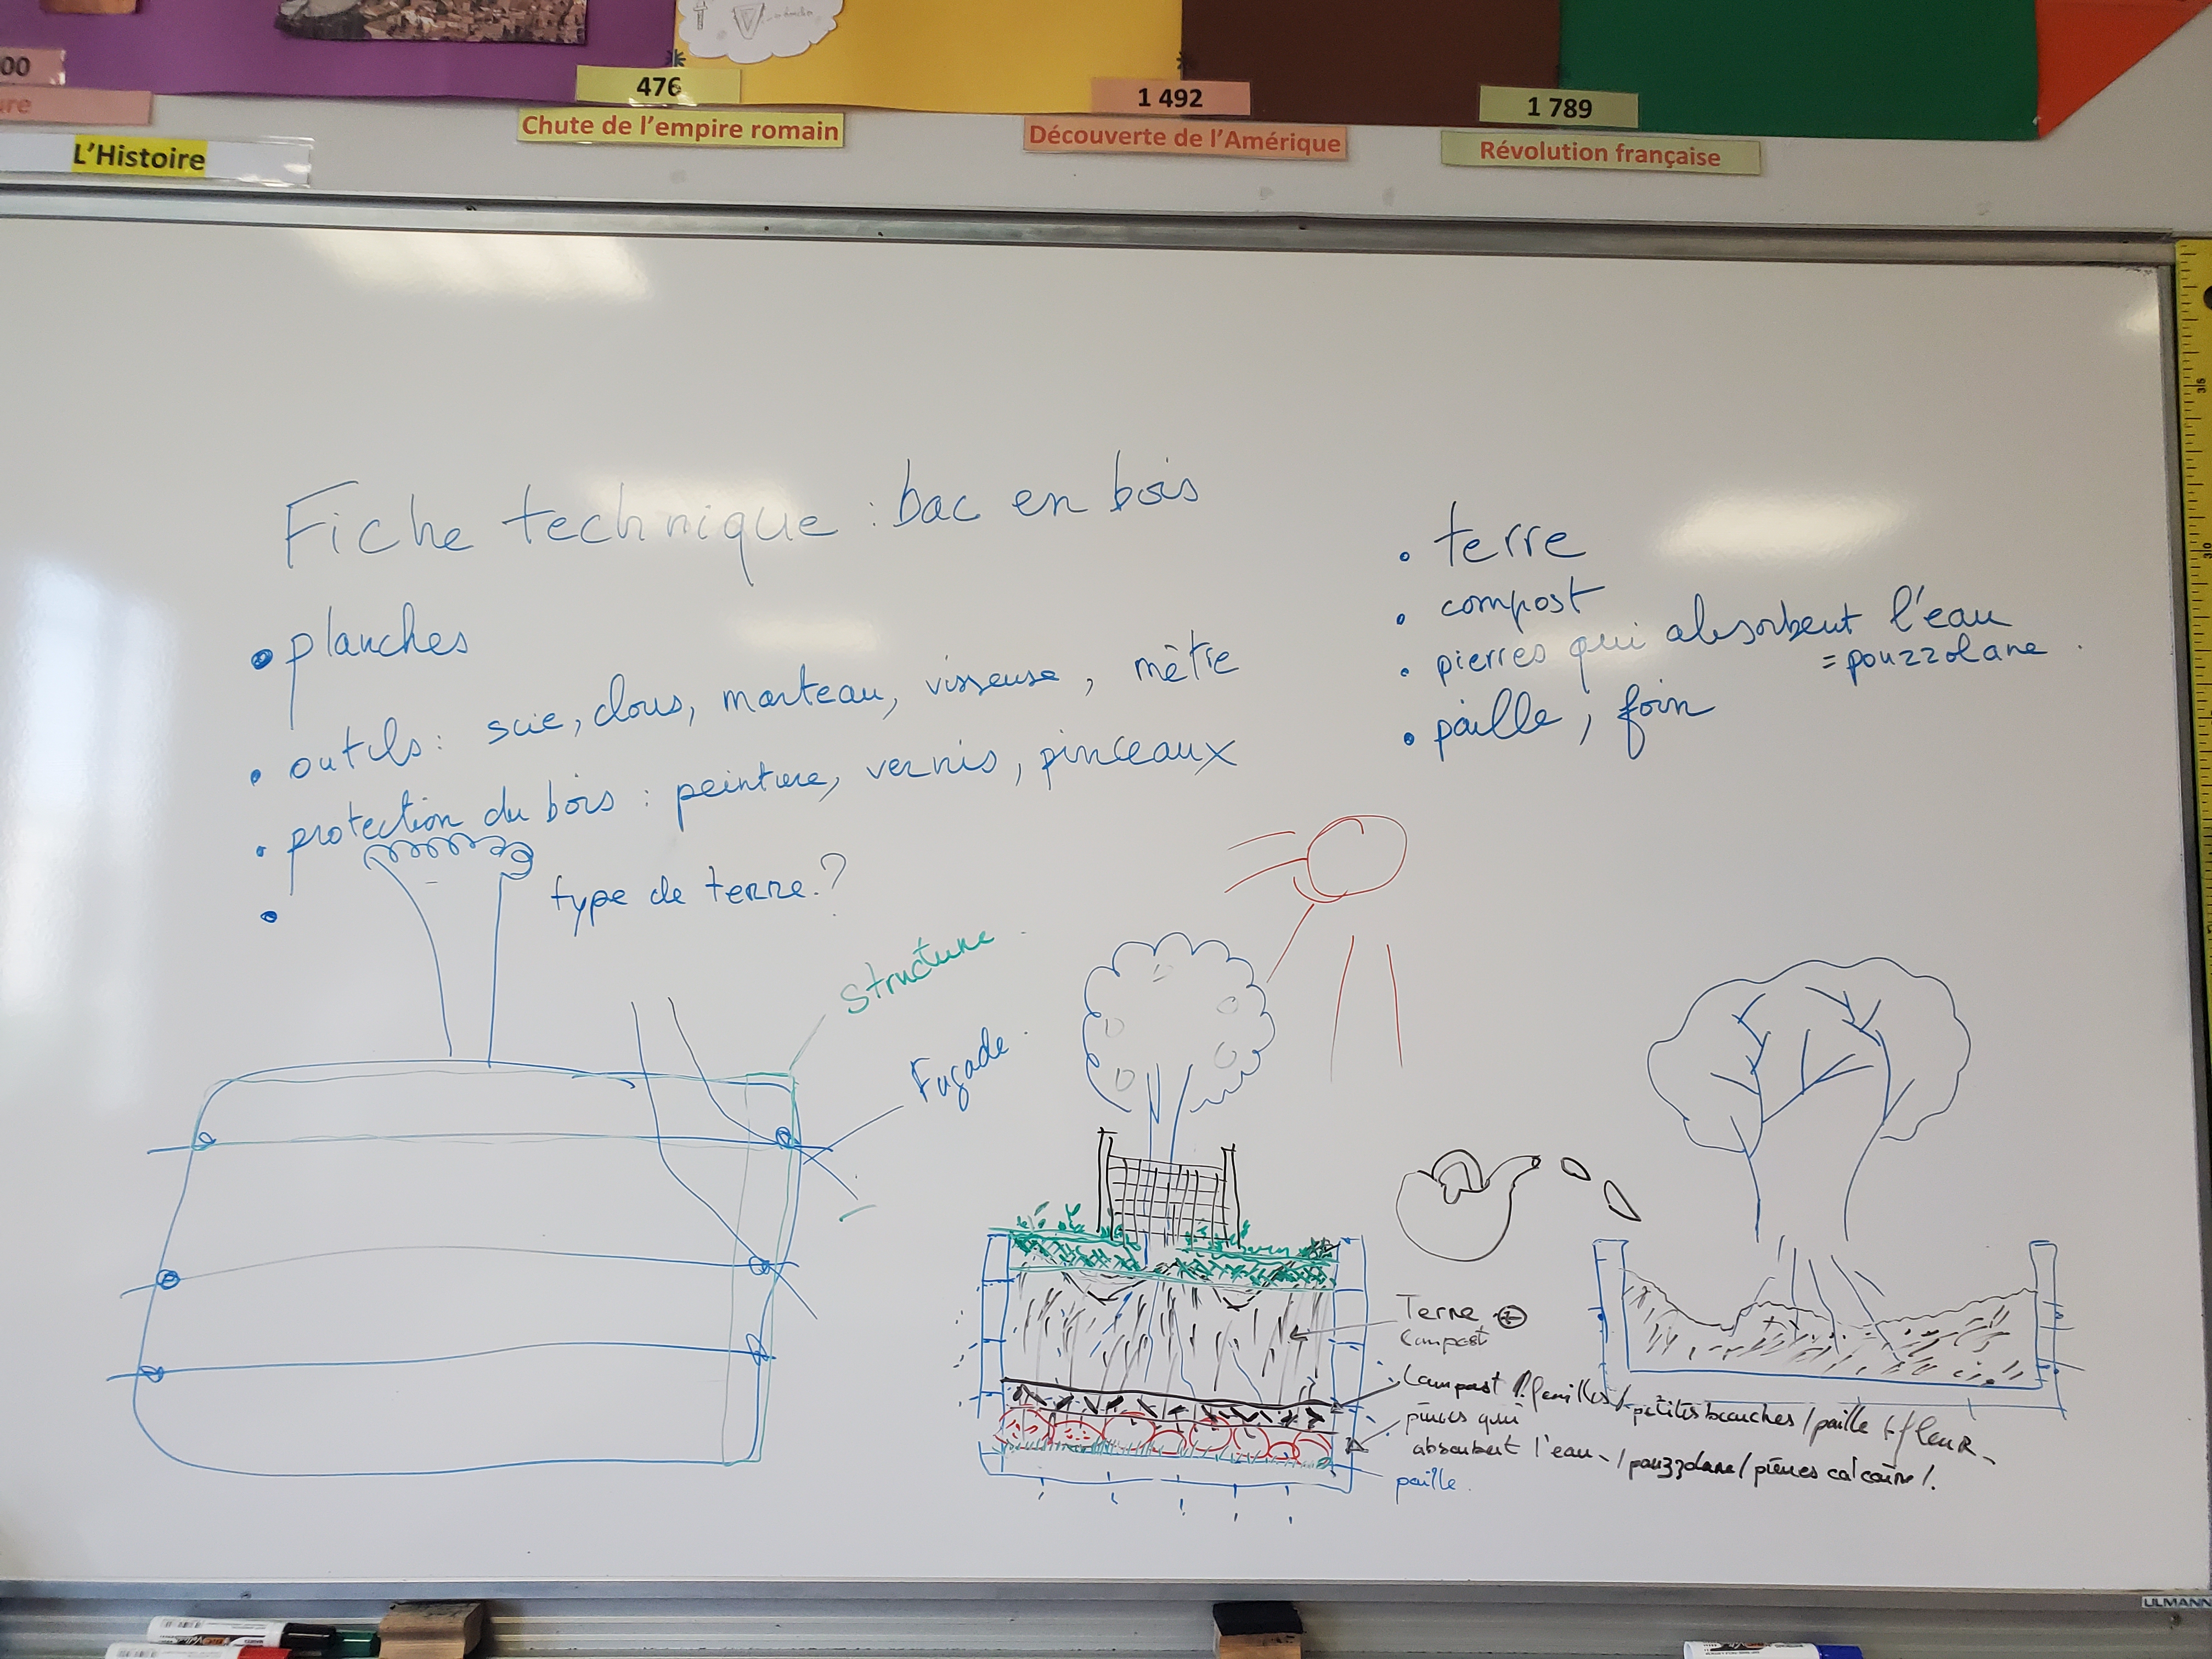 00
476
1 492
1 789
ure
Chute de l'empire romain
Découverte de l'Amérique
Révolution française
L'Histoire
Fiche technique : bac en bois
• planches
• outils : scie, clous, marteau, visseuse, mètre
• protection du bois : peinture, vernis, pinceaux
•
type de terre ?
• terre
• compost
• pierres qui absorbent l'eau
= pouzzolane
• paille, foin
structure
Façade
Terre +
Compost
Compost feuilles / petites branches / paille + fleur
pierres qui
absorbent l'eau / pouzzolane / pierres calcaire /.
paille
35
30
ULMANN